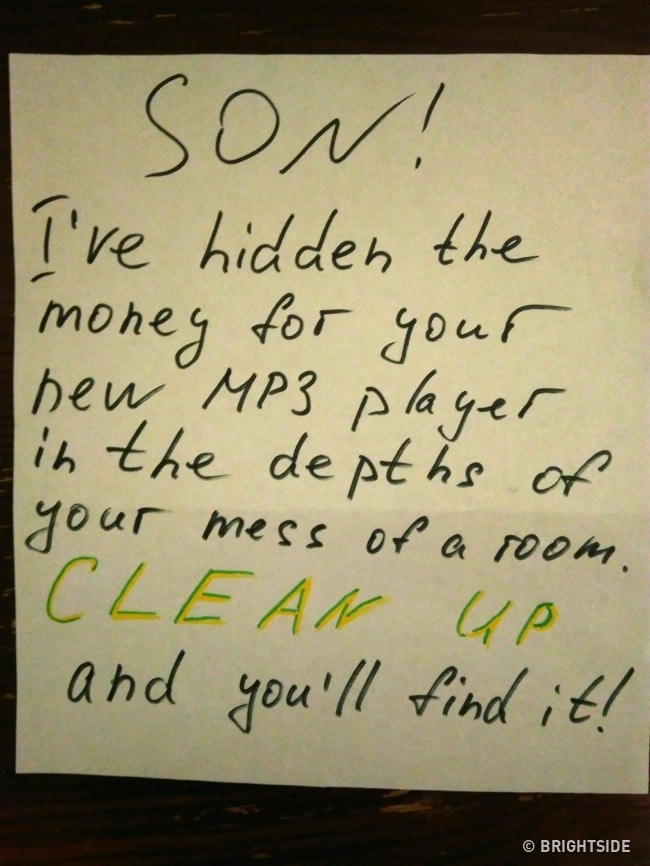 SON!
I've hidden the
money for your
new MP3 player
in the depths of
your mess of a room.
CLEAN UP
and you'll find it!
© BRIGHTSIDE